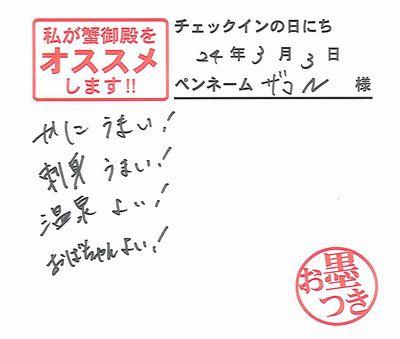 私が蟹御殿を
オススメ
します!!
チェックインの日にち
24年3月3日
ペンネーム ザコN 様
かに うまい!
刺身 うまい!
温泉 よい!
おばちゃんよい!
お墨
つき